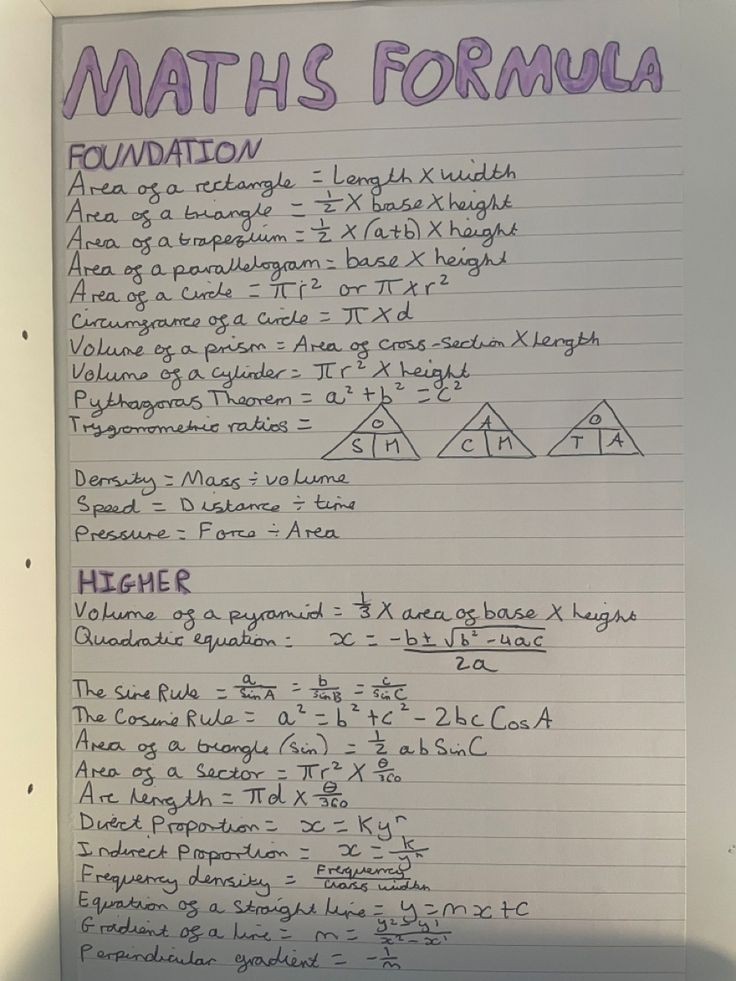 MATHS FORMULA
FOUNDATION
Area of a rectangle = Length X width
Area of a triangle = 1/2 X base X height
Area of a trapezium = 1/2 X (a+b) X height
Area of a parallelogram = base X height
Area of a circle = πr² or π x r²
Circumfrance of a circle = π X d
Volume of a prism = Area of cross-section X Length
Volume of a cylinder = πr² X height
Pythagoras Theorem = a² + b² = c²
Trygonometric ratios = O S H A C H O T A
Density = Mass ÷ volume
Speed = Distance ÷ time
Pressure = Force ÷ Area
HIGHER
Volume of a pyramid = 1/3 X area of base X height
Quadratic equation = x = -b ± √b² - 4ac / 2a
The Sine Rule = a/SinA = b/SinB = c/SinC
The Cosine Rule = a² = b² + c² - 2bc CosA
Area of a triangle (sin) = 1/2 ab SinC
Area of a Sector = πr² X θ/360
Arc length = πd X θ/360
Direct Proportion = x = Kyⁿ
Indirect Proportion = x = k/yⁿ
Frequency density = Frequency/Class width
Equation of a straight line = y = mx + c
Gradient of a line = m = y² - y¹ / x² - x¹
Perpindicular gradient = - 1/m